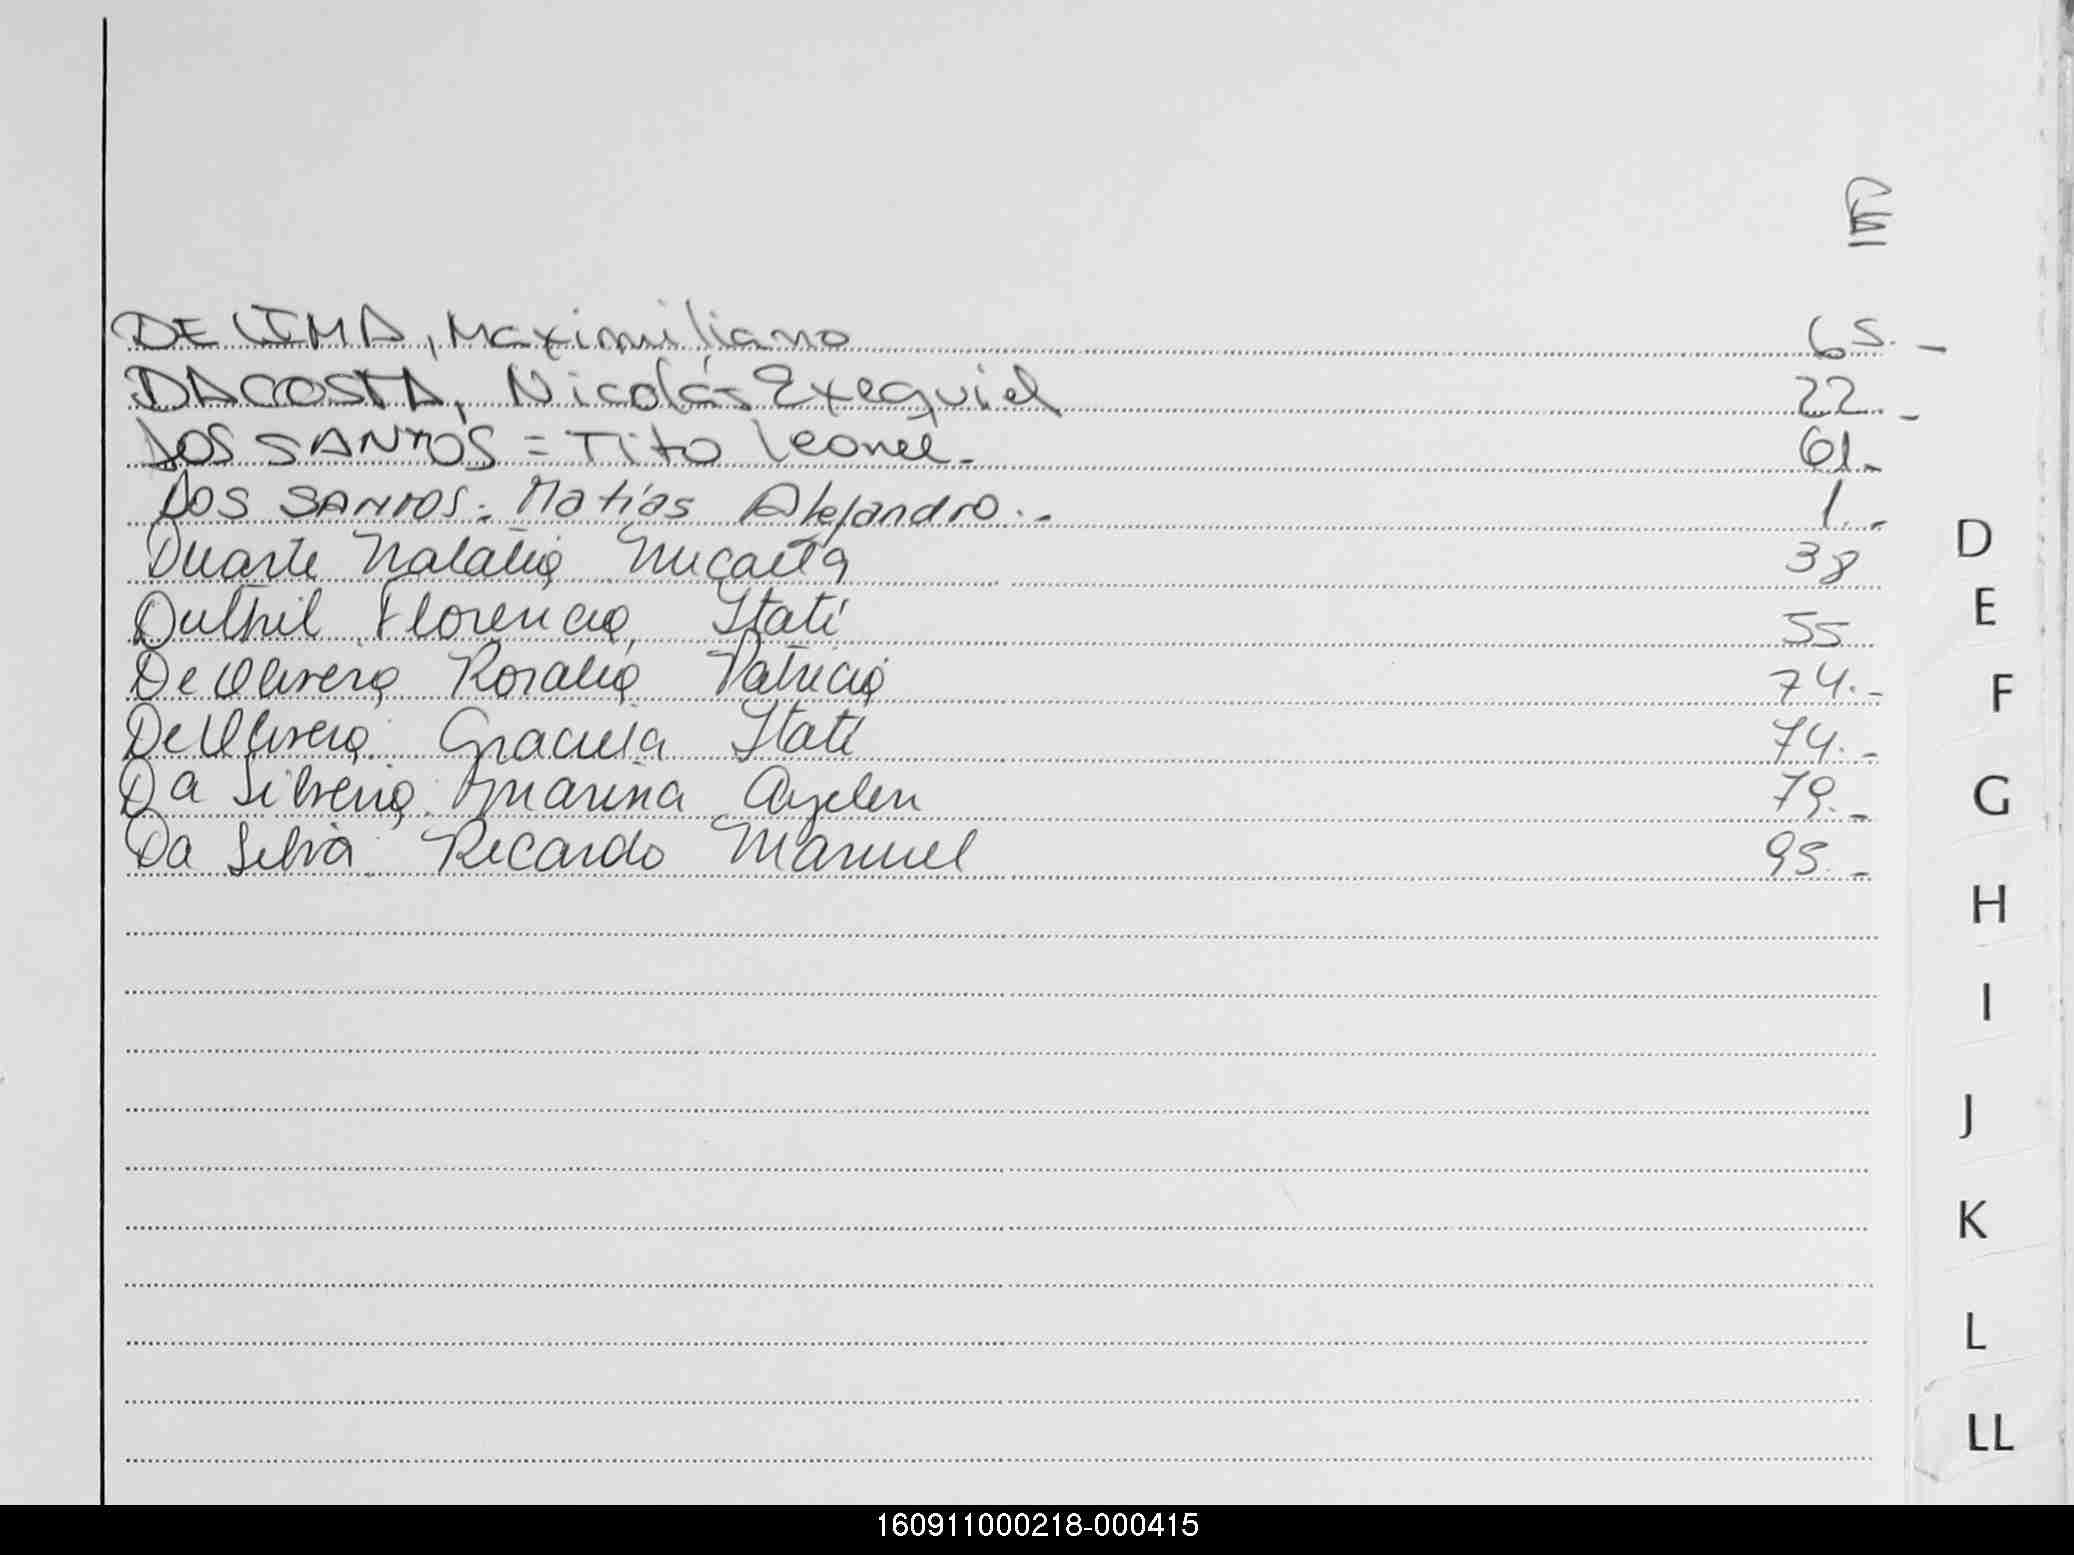 DE LIMA, Maximiliano 65.-
DACOSTA, Nicolás Exequiel 22.-
DOS SANTOS = Tito Leonel.- 61.-
DOS SANTOS. Matías Alejandro.- 1.-
Duarte Natalia Micaela 38
Duthil Florencia Itatí 55
De Olivera Rosalia Patricia 74.-
De Olivera Graciela Itatí 74.-
Da Silveira Marina Ayelen 79.-
Da Silva Ricardo Manuel 95.-
D
E
F
G
H
I
J
K
L
LL
160911000218-000415